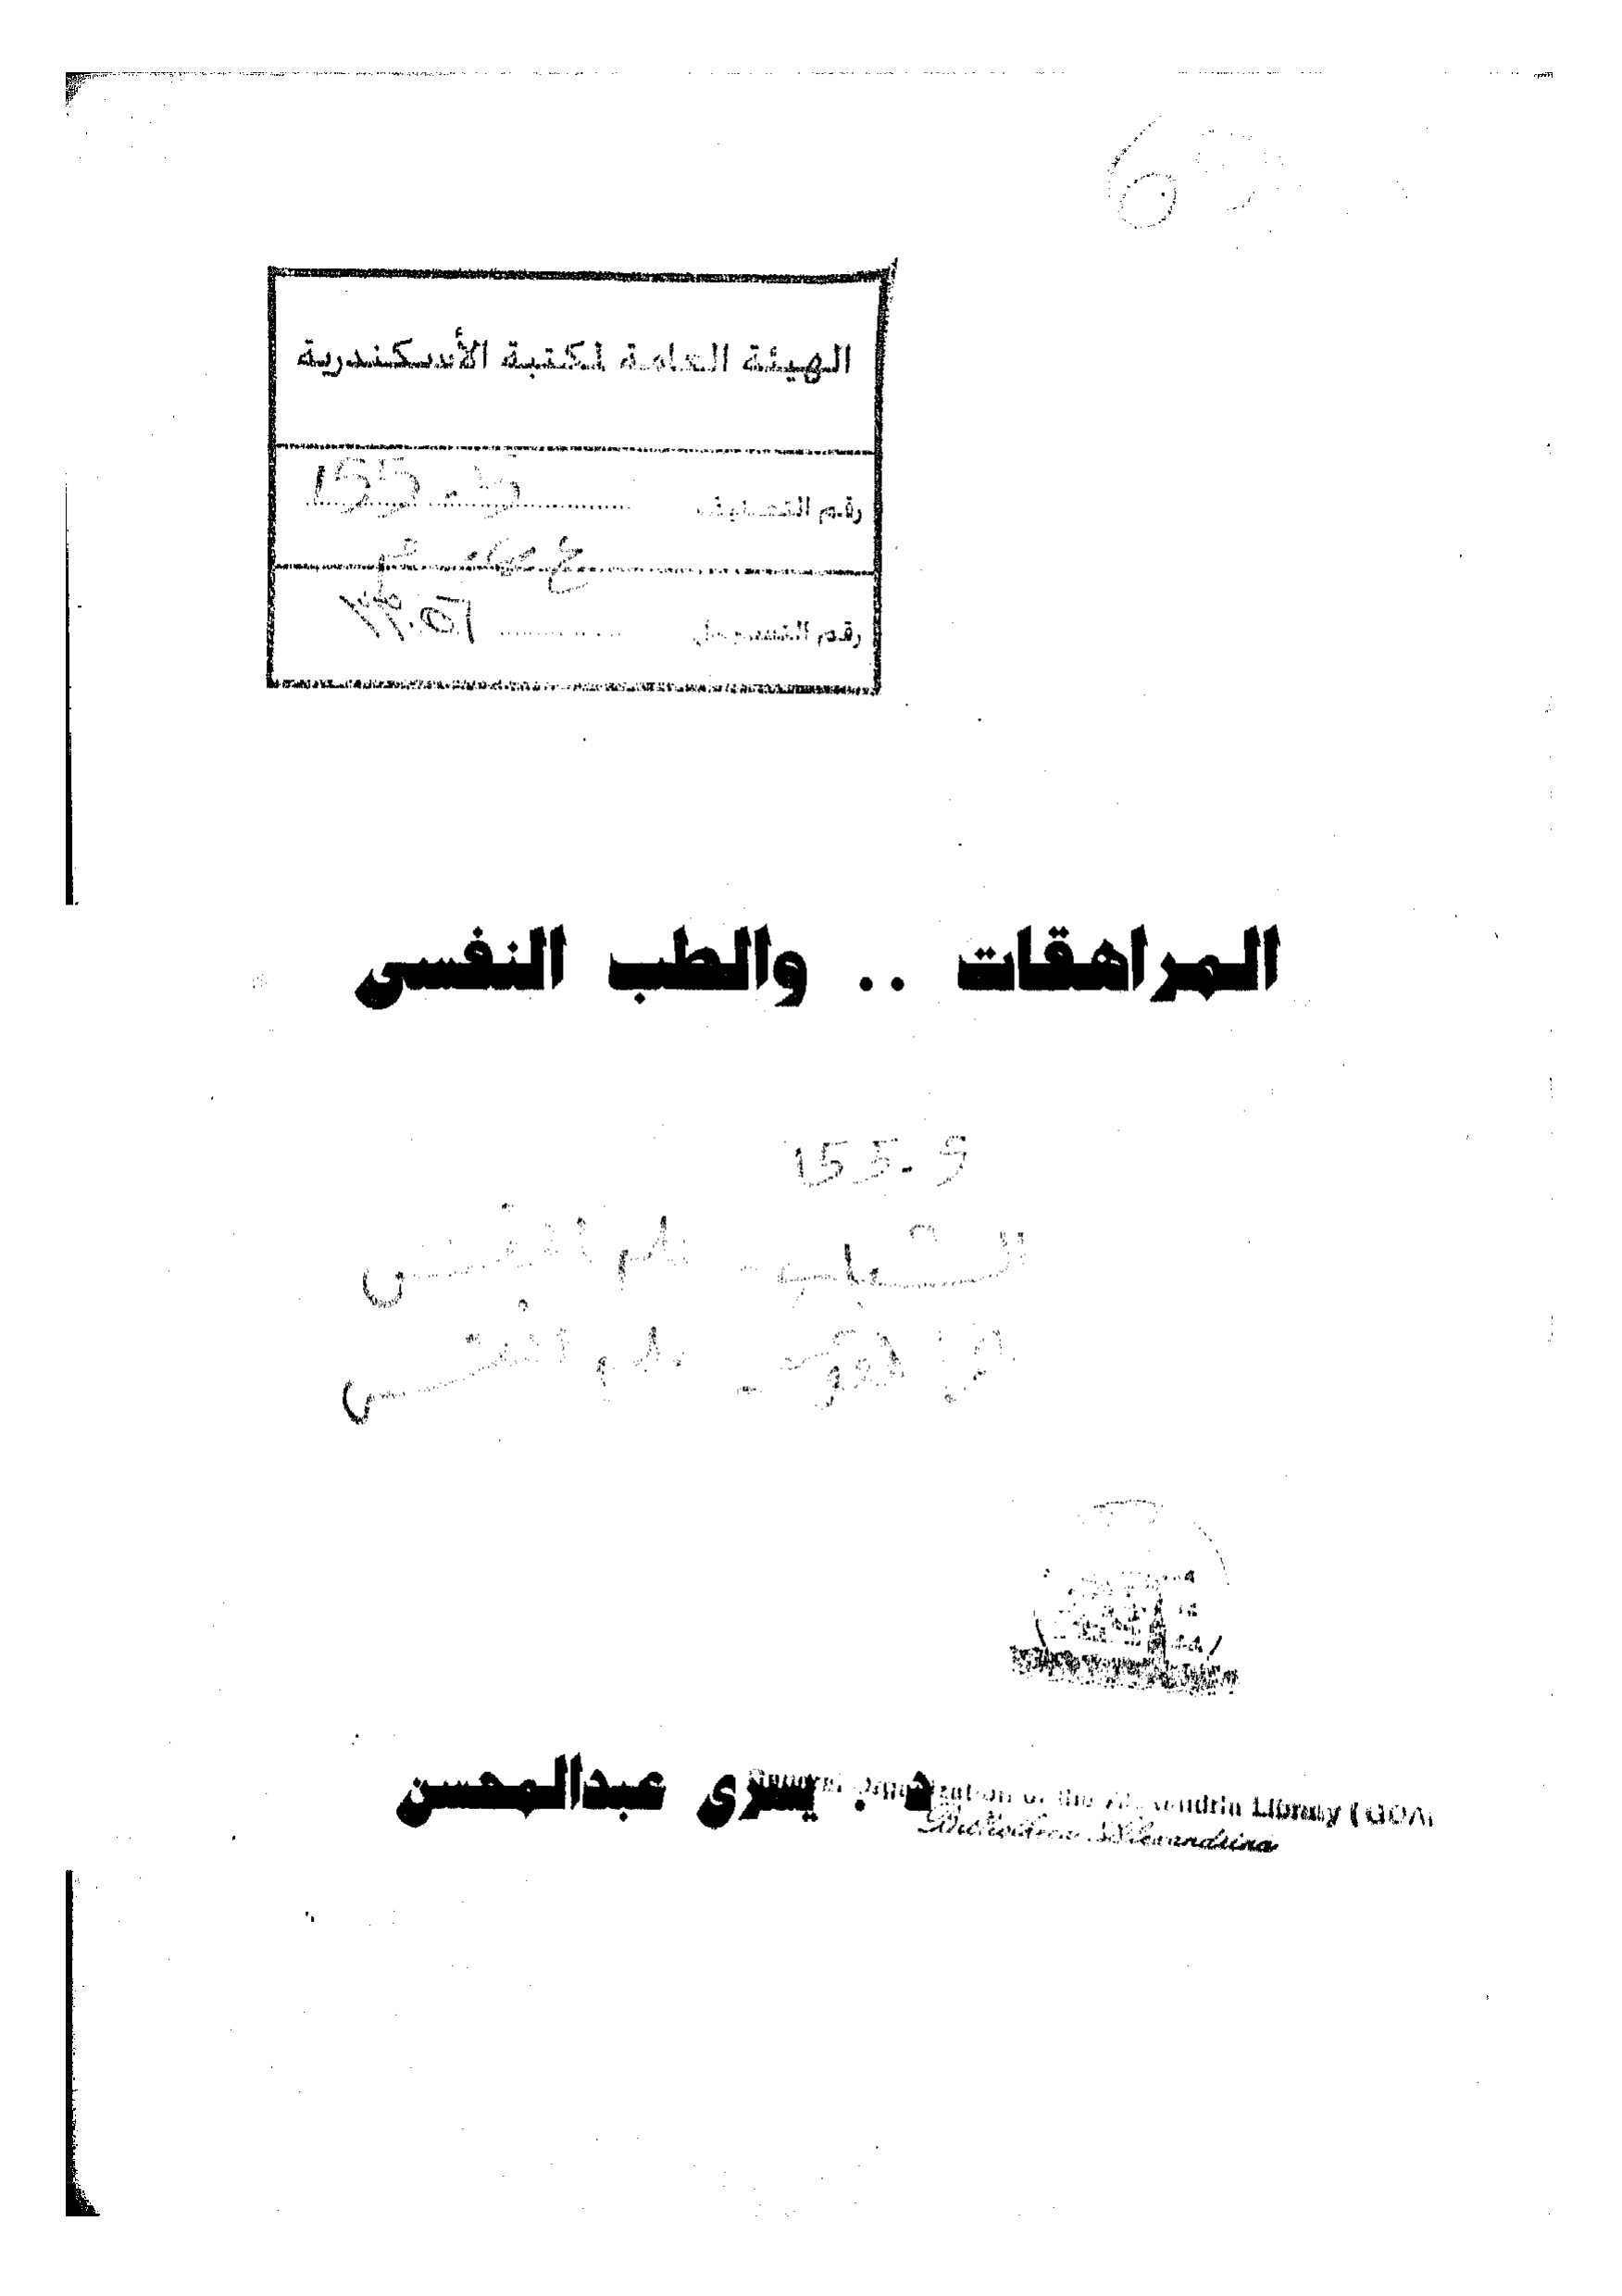 الهيئة العامة لمكتبة الأسكندرية
رقم التصنيف 155.5
رقم التسجيل
المراهقات .. والطب النفسى
155.5
علم النفس
علم النفس
د . يسرى عبدالمحسن
General Organization of the Alexandria Library (GOA
Bibliotheca Alexandrina